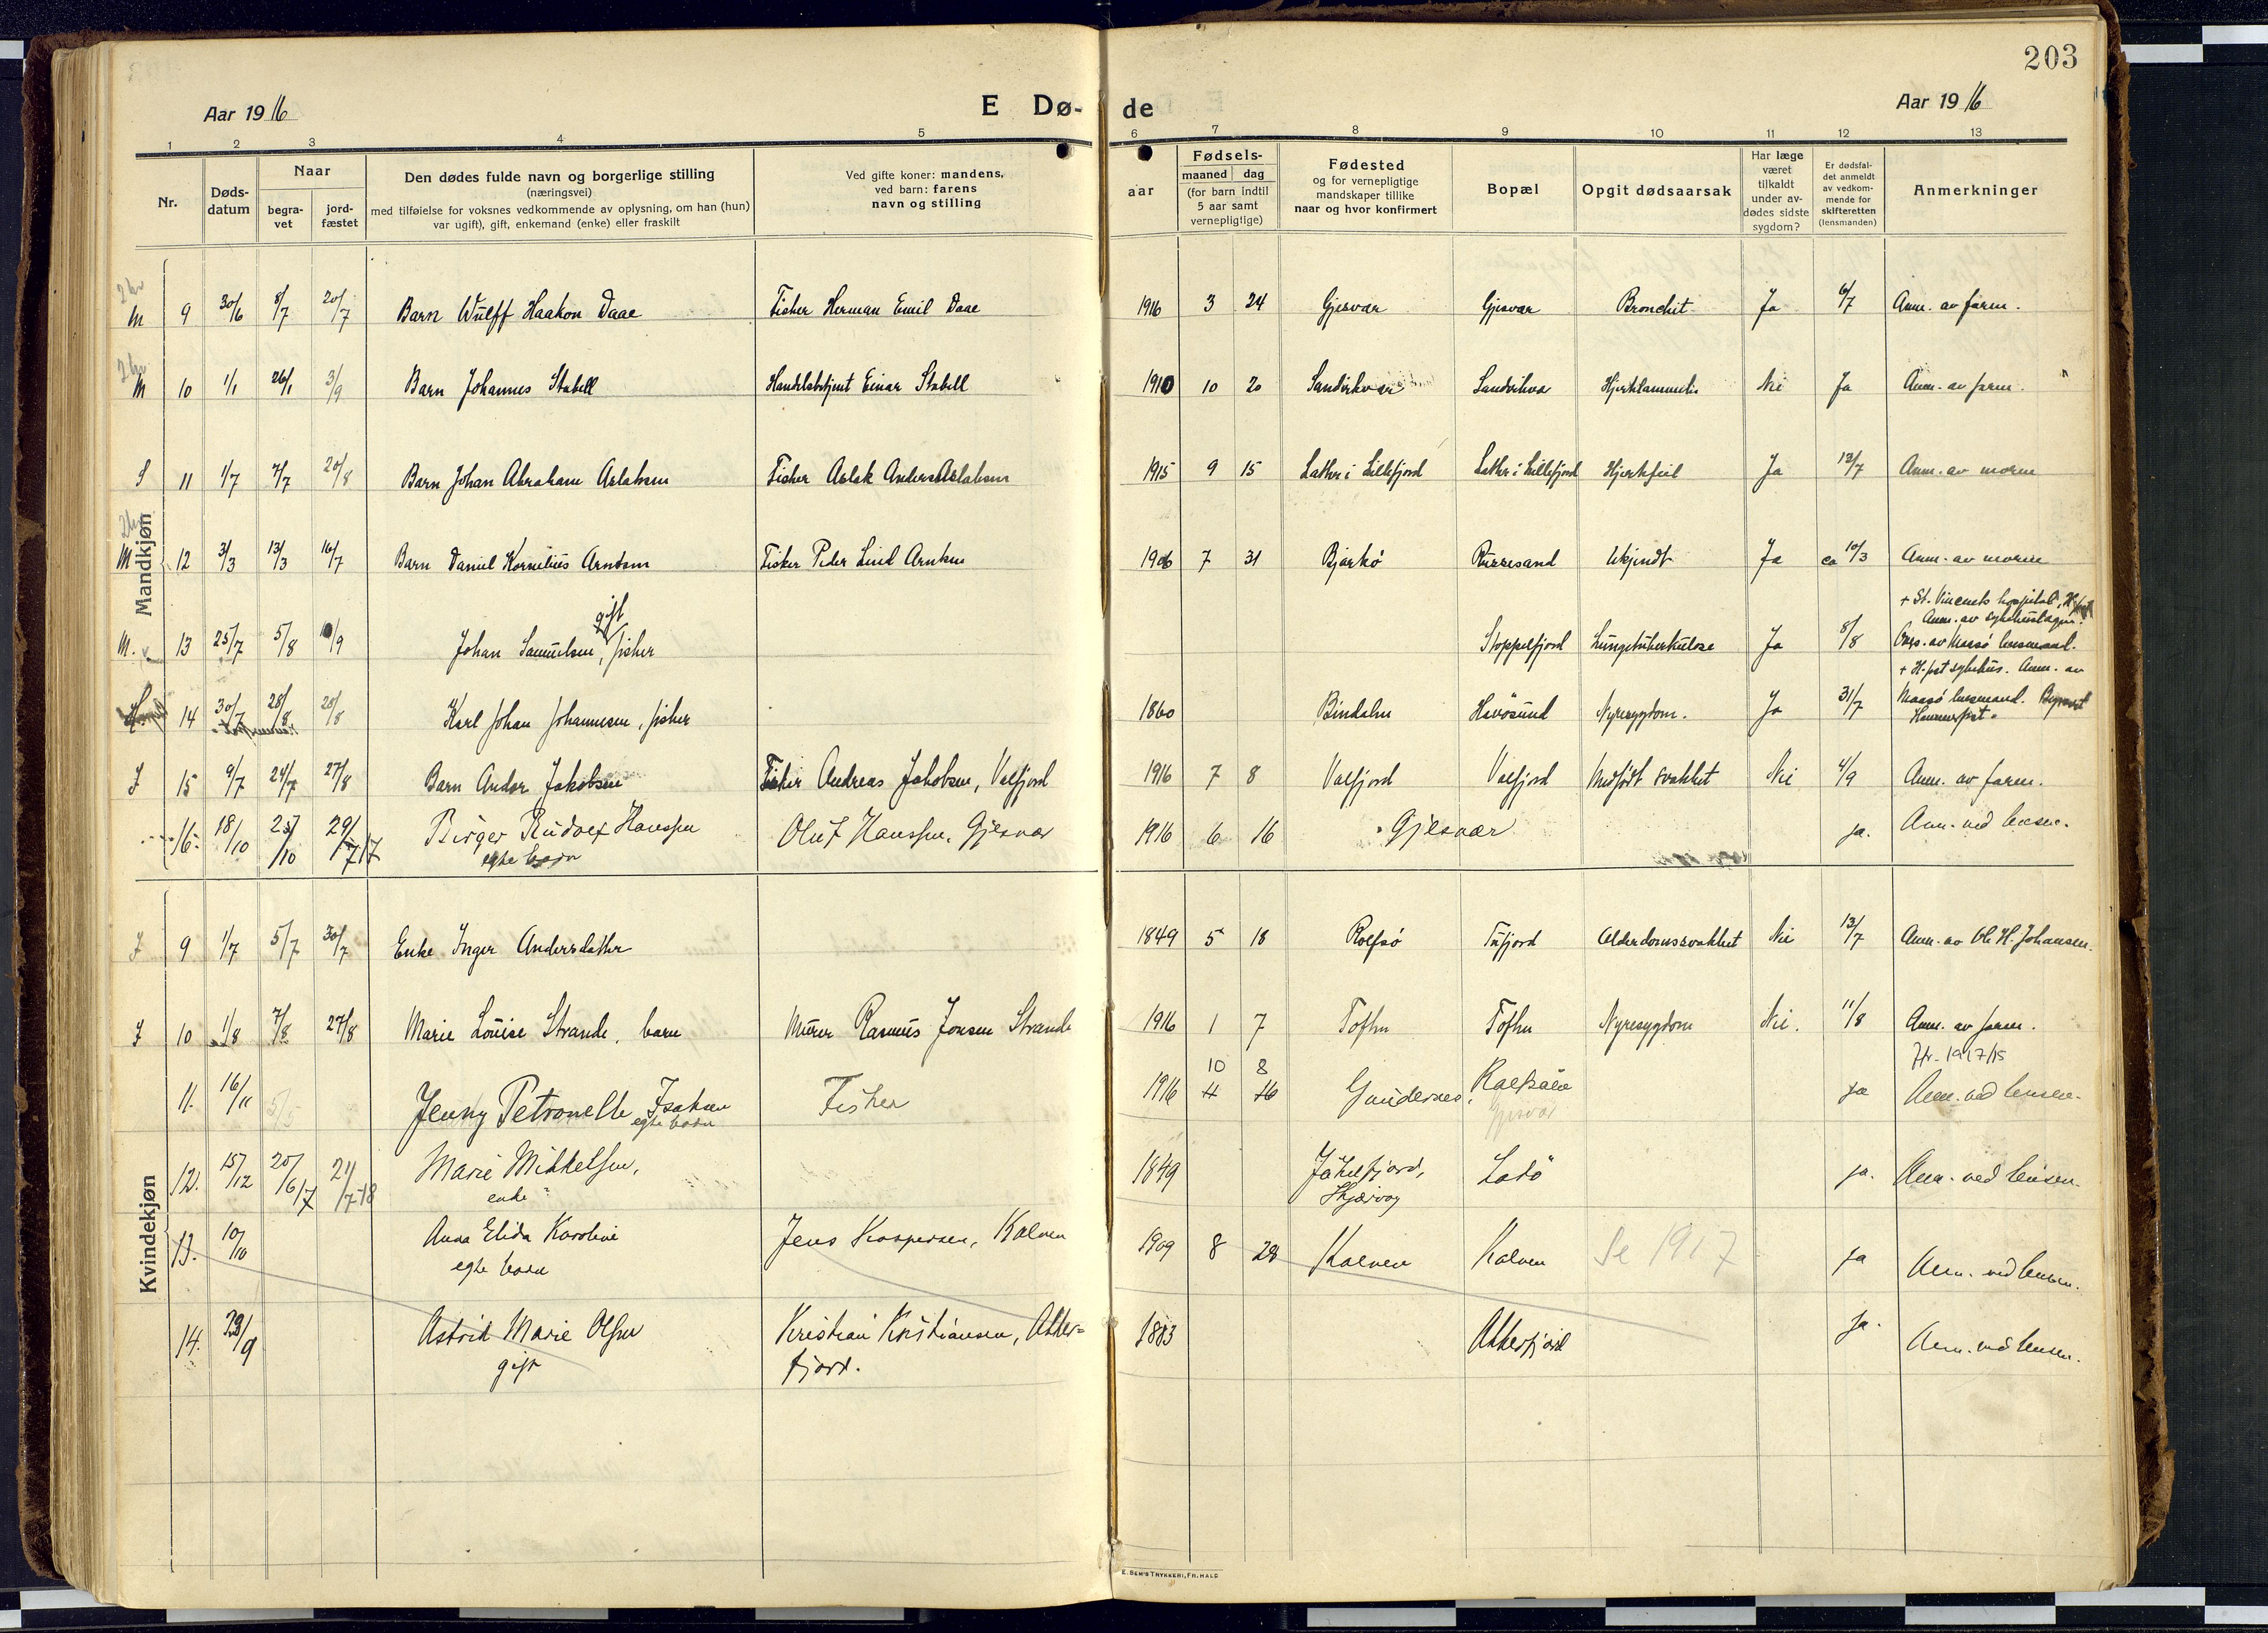 203
Aar 1916
E Dø-
de
Aar 1916
1 2 3 4 5 6 7 8 9 10 11 12 13
Nr.
Døds-
datum
Naar
begra-
vet
jord-
fæstet
Den dødes fulde navn og borgerlige stilling
(næringsvei)
med tilføielse for voksnes vedkommende av oplysning, om han (hun)
var ugift), gift, enkemand (enke) eller fraskilt
Ved gifte koner: mandens,
ved barn: farens
navn og stilling
aar
Fødsels-
maaned dag
(for barn indtil
5 aar samt
vernepligtige)
Fødested
og for vernepligtige
mandskaper tillike
naar og hvor konfirmert
Bopæl
Opgit dødsaarsak
Har læge
været
tilkaldt
under av-
dødes sidste
sygdom?
Er dødsfal-
det anmeldt
av vedkom-
mende for
skifteretten
(lensmanden)
Anmerkninger
Mandkjøn
M 9 30/6 8/7 20/7 Barn Wulff Haakon Daae Fisker Herman Emil Daae 1916 3 24 Gjesvær Gjesvær Bronchit Ja 6/7 Anm. av faren.
M 10 1/1 26/1 3/9 Barn Johannes Stabell Handelsbetjent Einar Stabell 1910 10 20 Sandvikvær Sandvikvær Nei Ja Anm. av faren.
S 11 1/7 7/7 20/8 Barn Johan Abraham Aslaksen Fisker Aslak Anders Aslaksen 1915 9 15 Latter i Lillefjord Latter i Lillefjord Hjertefeil Ja 13/7 Anm. av moren
M 12 3/3 13/3 16/7 Barn Daniel Kornelius Arntsen Fisker Peder Lind Arntsen 1906 7 31 Bjarkö Ukjendt Ja ca 10/3 Anm. av moren
M. 13 25/7 5/8 /9 Johan Samuelsen, gift fisker Stoppelfjord Lungetuberkulose Ja 8/8 + St. Vincents hospital, H.fest
Anm. av
av Maasø lensmand.
14 30/7 28/8 28/8 Karl Johan Johannesen, fisker 1860 Bindalen Havösund Nyresygdom. Ja 31/7 + H.fest sykehus. Anm. av
Maasø lensmand.
Hammerfest.
J 15 9/7 24/7 27/8 Barn Andor Jakobsen Fisker Andreas Jakobsen, Valfjord 1916 7 8 Valfjord Valfjord Medfødt svakhet Nei 4/9 Anm. av faren.
16. 18/10 25/10 29/7 17 Birger Rudolf Hanssen Oluf Hanssen, Gjesvær 1916 6 16 Gjesvær ja. Anm. ved lensm.
egte barn
Kvindekjøn
J 9 1/7 5/7 30/7 Enke Inger Andersdatter 1849 5 18 Rolfsö Tufjord Alderdomssvakhet Nei 13/7 Anm. av Ole H. Johansen.
J 10 1/8 7/8 27/8 Marie Louise Strande, barn Murer Rasmus Jonsen Strande 1916 1 7 Toften Toften Nyresygdom Nei. 11/8 Anm. av faren.
Jfr. 1917/15
11. 16/11 5/5 Jenny Petronelle Isaksen Fisker 1916 11 16 10 8 Gunnernes, Gjesvær ja Anm. ved lensm.
egte barn
12. 15/12 20/6 17 21/7-18 Marie Mikkelsen, 1849 Jøkelfjord, Ladö ja. Anm. ved lensm.
enke Skjærvøy
13. 10/10 Anna Elida Karoline Jens Kaspersen, Kalven 1909 8 28 Kalven Kalven Se 1917 ja Anm. ved lensm.
egte barn
14. 29/9 Astrid Marie Olsen Kristian Kristiansen, Akker- 1883 Akkerfjord ja. Anm. ved lensm.
gift fjord.
E. SEM'S TRYKKERI, FR.HALD